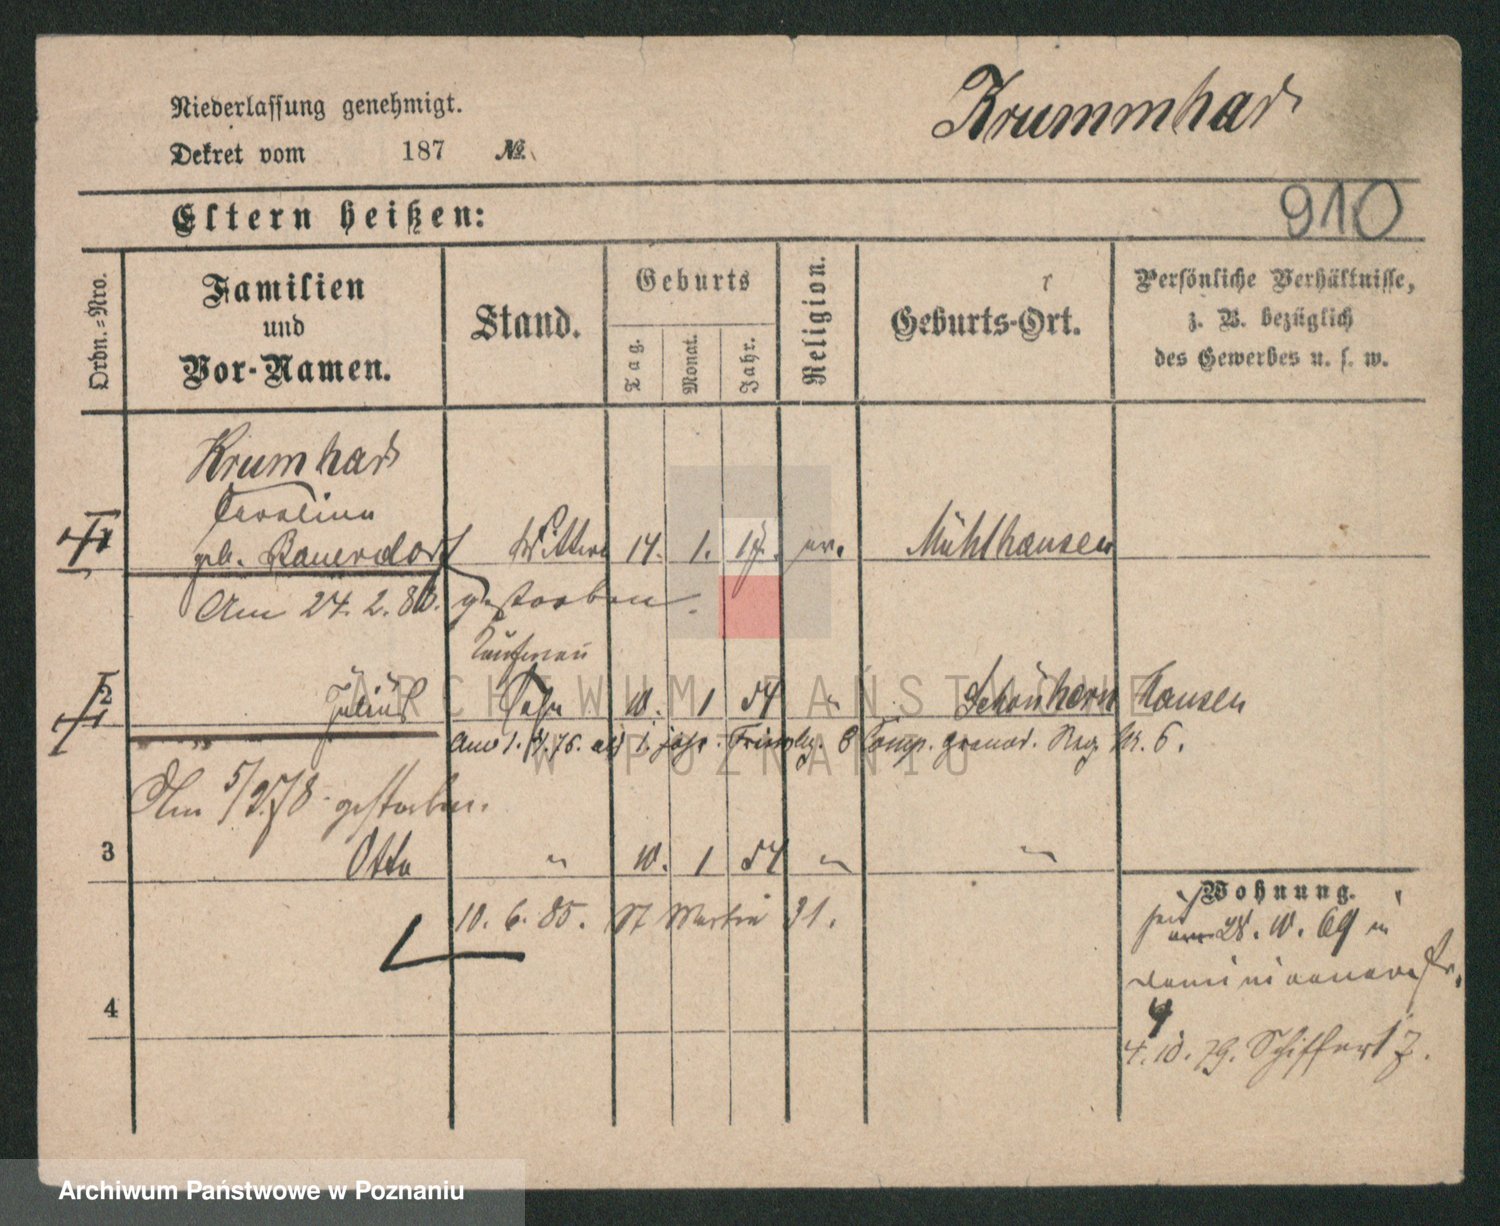 Niederlassung genehmigt.
Dekret vom 187 №
Krummhar
910
Eltern heißen:
Ordn.-Nro.
Familien
und
Vor-Namen.
Stand.
Geburts
Tag.
Monat.
Jahr.
Religion.
Geburts-Ort.
Persönliche Verhältnisse,
z. B. bezüglich
des Gewerbes u. s. w.
Krumhar
Caroline
1 geb. Bauerdorf Wittwe 14. 1. 17. ev. Mühlhausen
Am 24. 2. 80. gestorben.
Kaufmann
2 Julius Sohn 10. 1 54 " Schönhern hausen
Am 1. 4. 76. als 1. jähr. Freiwlg. 8 Comp. grenad. Reg. Nr. 6.
Am 5/2.78 gestorben.
3 Otto " 10. 1 54 " "
10. 6. 85. St Martin 31.
4
Wohnung.
seit 28. 10. 69 in
Dominicanerstr.
4
4. 10. 79. Schifferstr 7.
ARCHIWUM PAŃSTWOWE
W POZNANIU
Archiwum Państwowe w Poznaniu